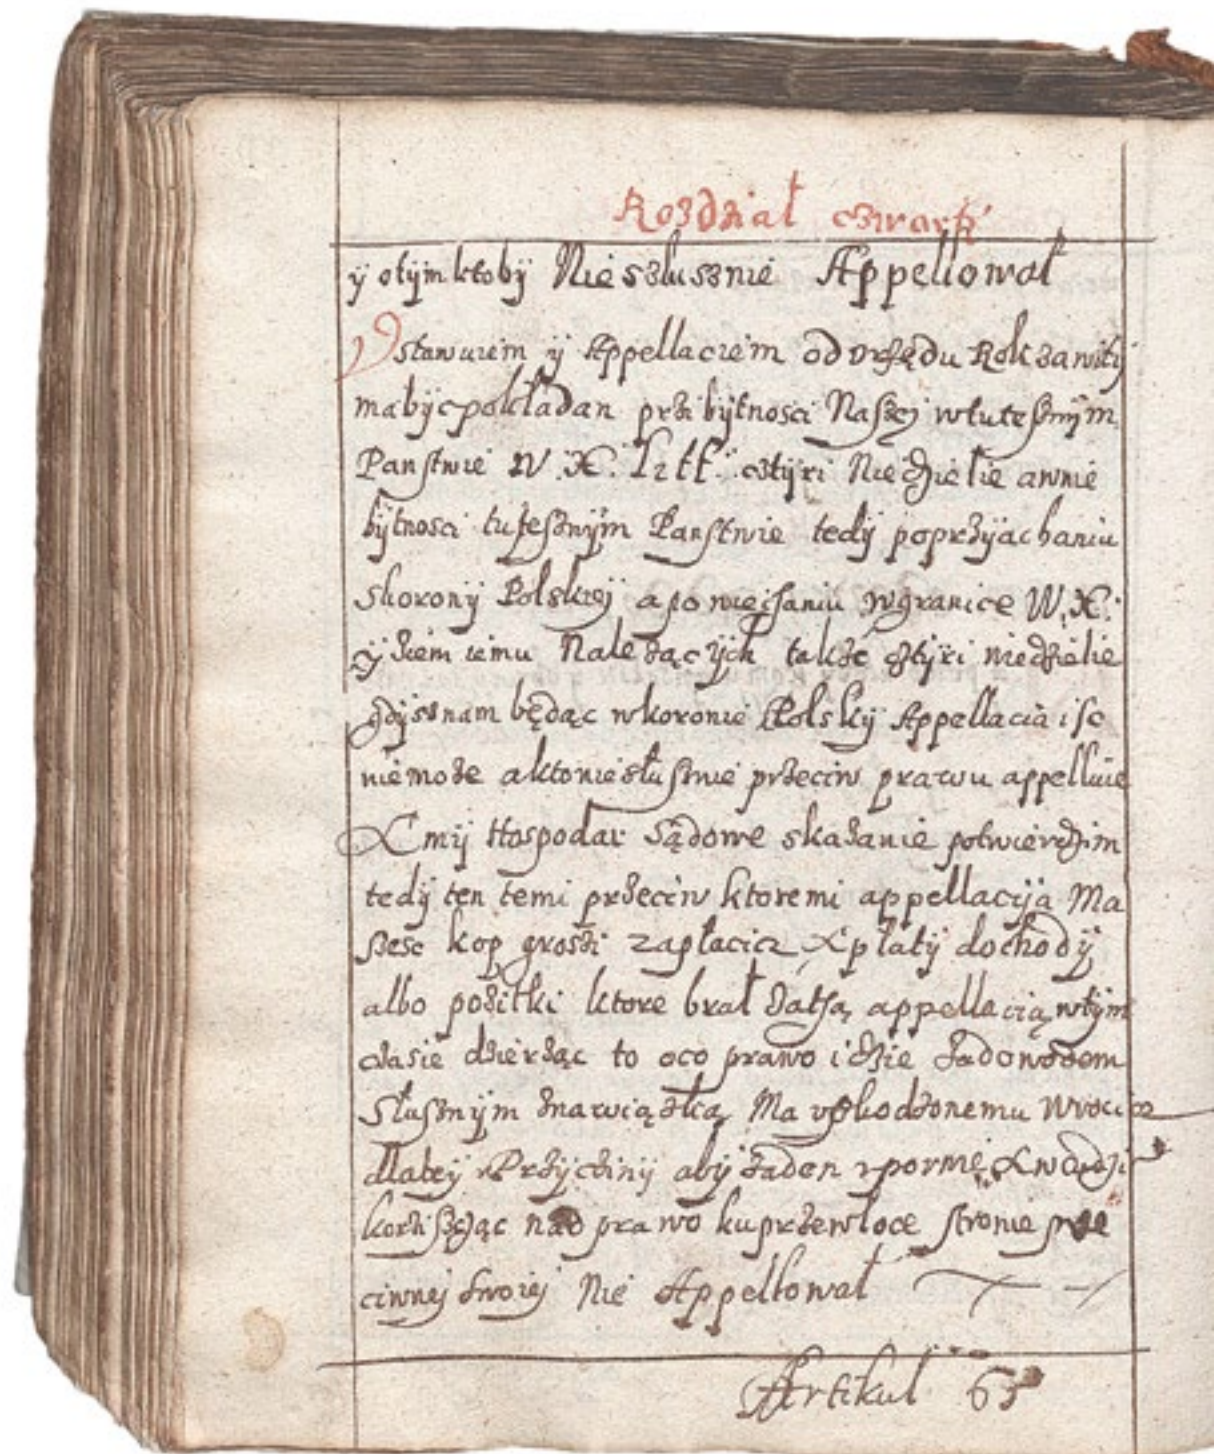 Rozdział czwarti
ÿ otÿm ktobÿ Nieszlusznie Appellował
Vstawuiem ÿ Appellaciem od vrzędu Rok zawitÿ
mabÿcpokładan przibÿtnosci Naszej wtutesznÿm
Panstwie W. X. Litt. cztÿri Niedzielie awnie
bÿtnosci tutesznÿm Panstwie tedÿ poprzÿiachaniu
skoronÿ Polskieÿ apo wiechaniu wgranice W. X:
ÿ ziem iemu Należącÿch także cztÿri niedzielie
gdÿsznam będąc wkoronie Polskÿ Appellacia isc
niemoże aktoniesłusznie przeciw prawu appelluie
A mÿ Hospodar Sądowe skazanie potwierdzim
tedÿ ten temi przeciw ktoremi appellacÿa Ma
szesc kop groszi zapłacicz A płatÿ dochodÿ
albo pożitki ktore brał zatą appellacią wtÿm
czasie dzierżąc to oco prawo idzie zadowodem
Słusznÿm znawiązką Ma vszkodzonemu Wrocicz
dlateÿ Przÿczinÿ abÿ żaden vpormę A wchodzi
korziszcząc nad prawo kuprzewłoce stronie prze
ciwneÿ swoieÿ Nie Appellował
Artikuł 63